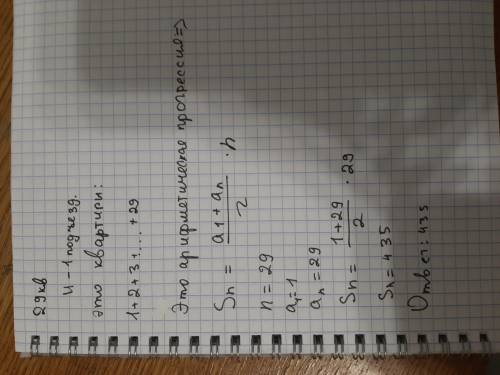 29 кв
И - 1 подъезд.
это квартиры:
1+2+3+...+29
Это арифметическая прогрессия =>
Sn = a1 + an / 2 · n
n = 29
a1 = 1
an = 29
Sn = 1+29 / 2 · 29
Sn = 435
Ответ: 435